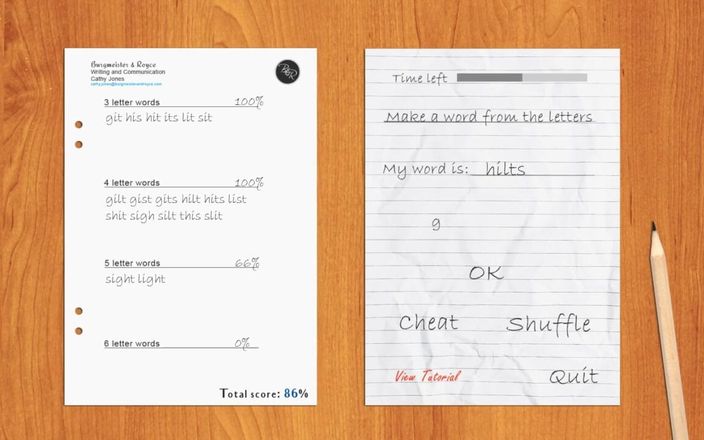 Burgmeister & Royce
Writing and Communication
Cathy Jones
cathy.jones@burgmeisterandroyce.com
B&R
3 letter words 100%
git his hit its lit sit
4 letter words 100%
gilt gist gits hilt hits list
shit sigh silt this slit
5 letter words 66%
sight light
6 letter words 0%
Total score: 86%
Time left
Make a word from the letters
My word is: hilts
g
OK
Cheat Shuffle
View Tutorial Quit